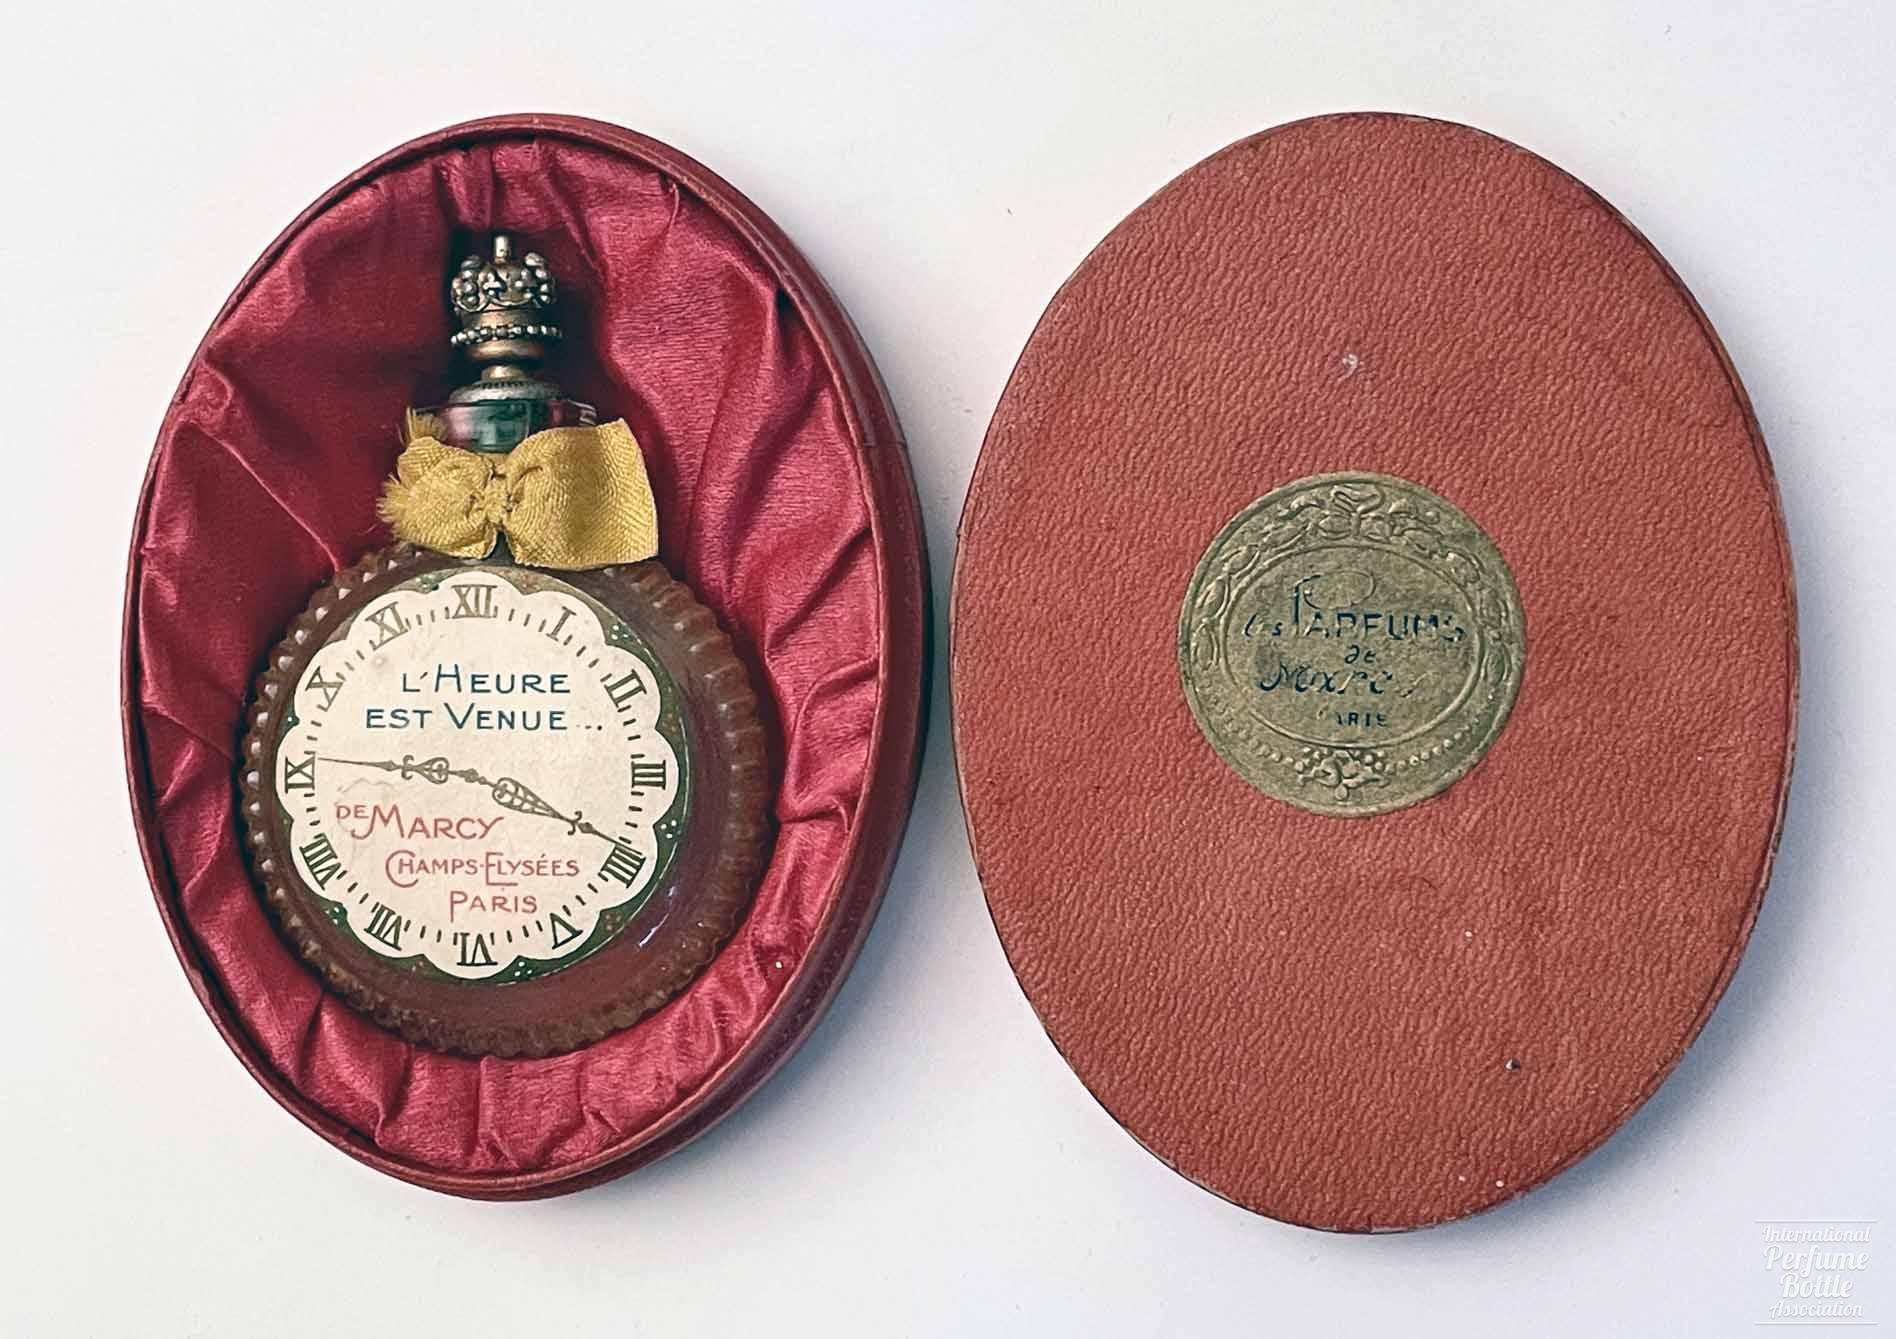 XII
I
II
III
IIII
V
VI
VII
VIII
IX
X
XI
L'HEURE
EST VENUE...
DE MARCY
CHAMPS-ELYSÉES
PARIS
Les PARFUMS
de
International
Perfume
Bottle
Association